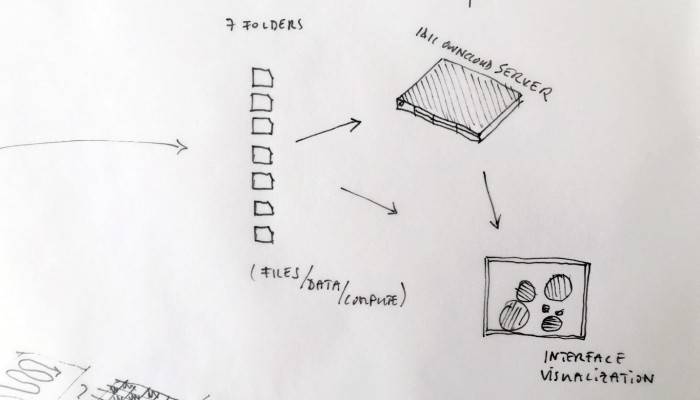 7 FOLDERS
IAIC OWNCLOUD SERVER
(FILES/DATA/COMPUTE)
INTERFACE
VISUALIZATION
?